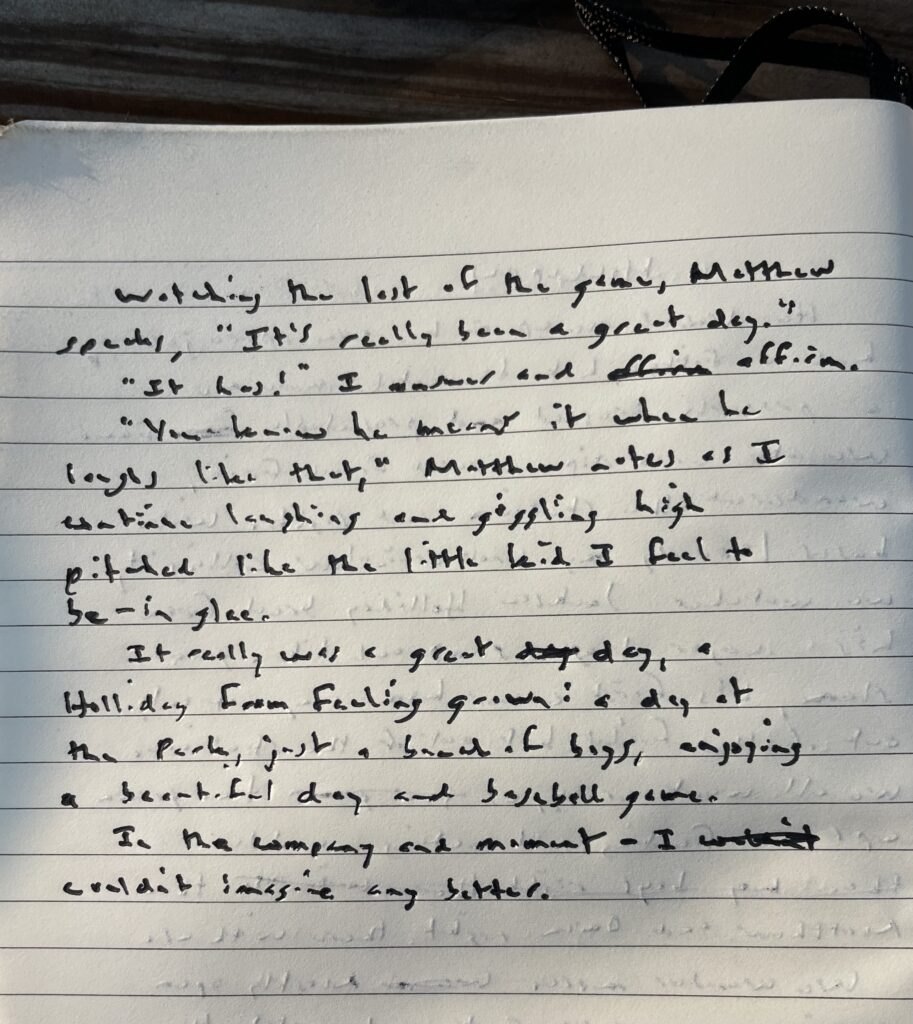 Watching the last of the game, Matthew
speaks, "It's really been a great day."
"It has!" I answer and affirm affirm.
"You know he means it when he
laughs like that," Matthew notes as I
continue laughing and giggling high
pitched like the little kid I feel to
be-in glee.
It really was a great day day, a
Holliday from feeling grown: a day at
the Park, just a bunch of boys, enjoying
a beautiful day and baseball game.
In the company and moment - I
couldn't imagine any better.